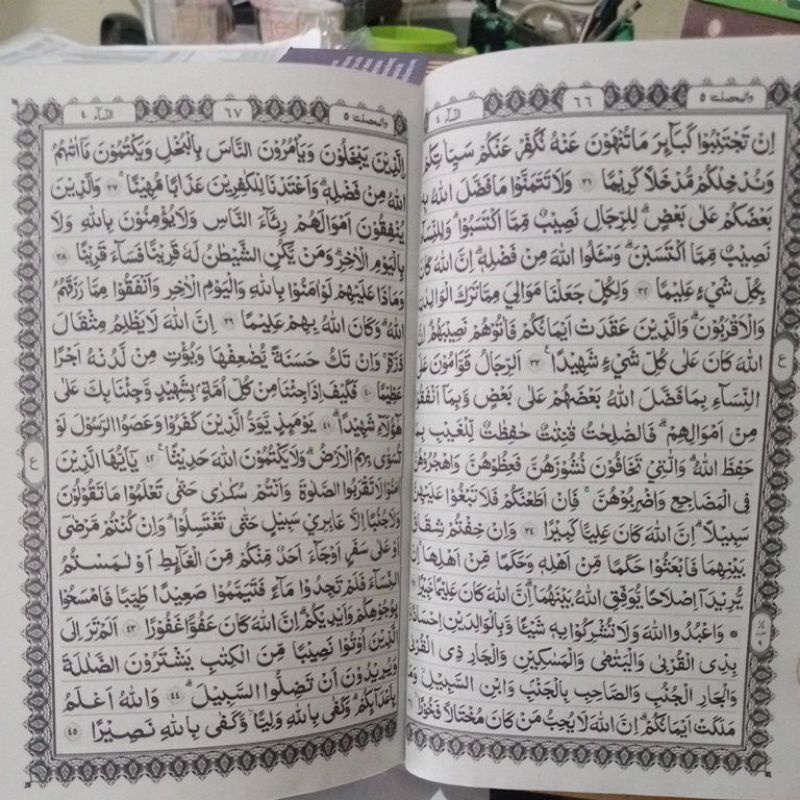 والمحصنت ٥
٦٦
النساء ٤
اِنْ تَجْتَنِبُوْا كَبَاۤىِٕرَ مَا تُنْهَوْنَ عَنْهُ نُكَفِّرْ عَنْكُمْ سَيِّاٰتِكُمْ
وَنُدْخِلْكُمْ مُّدْخَلًا كَرِيْمًا ٣١ وَلَا تَتَمَنَّوْا مَا فَضَّلَ اللّٰهُ بِهٖ
بَعْضَكُمْ عَلٰى بَعْضٍ ۗ لِلرِّجَالِ نَصِيْبٌ مِّمَّا اكْتَسَبُوْا ۗ وَلِلنِّسَاۤءِ
نَصِيْبٌ مِّمَّا اكْتَسَبْنَ ۗ وَسْـَٔلُوا اللّٰهَ مِنْ فَضْلِهٖ ۗ اِنَّ اللّٰهَ كَانَ
بِكُلِّ شَيْءٍ عَلِيْمًا ٣٢ وَلِكُلٍّ جَعَلْنَا مَوَالِيَ مِمَّا تَرَكَ الْوَالِدٰنِ
وَالْاَقْرَبُوْنَ ۗ وَالَّذِيْنَ عَقَدَتْ اَيْمَانُكُمْ فَاٰتُوْهُمْ نَصِيْبَهُمْ ۗ اِنَّ
اللّٰهَ كَانَ عَلٰى كُلِّ شَيْءٍ شَهِيْدًا ࣖ ٣٣ اَلرِّجَالُ قَوَّامُوْنَ عَلَى
النِّسَاۤءِ بِمَا فَضَّلَ اللّٰهُ بَعْضَهُمْ عَلٰى بَعْضٍ وَّبِمَآ اَنْفَقُوْا
مِنْ اَمْوَالِهِمْ ۗ فَالصّٰلِحٰتُ قٰنِتٰتٌ حٰفِظٰتٌ لِّلْغَيْبِ بِمَا
حَفِظَ اللّٰهُ ۗ وَالّٰتِيْ تَخَافُوْنَ نُشُوْزَهُنَّ فَعِظُوْهُنَّ وَاهْجُرُوْهُنَّ
فِى الْمَضَاجِعِ وَاضْرِبُوْهُنَّ ۚ فَاِنْ اَطَعْنَكُمْ فَلَا تَبْغُوْا عَلَيْهِنَّ
سَبِيْلًا ۗ اِنَّ اللّٰهَ كَانَ عَلِيًّا كَبِيْرًا ٣٤ وَاِنْ خِفْتُمْ شِقَاقَ
بَيْنِهِمَا فَابْعَثُوْا حَكَمًا مِّنْ اَهْلِهٖ وَحَكَمًا مِّنْ اَهْلِهَا ۚ اِنْ
يُّرِيْدَآ اِصْلَاحًا يُّوَفِّقِ اللّٰهُ بَيْنَهُمَا ۗ اِنَّ اللّٰهَ كَانَ عَلِيْمًا خَبِيْرًا
۞ وَاعْبُدُوا اللّٰهَ وَلَا تُشْرِكُوْا بِهٖ شَيْـًٔا وَّبِالْوَالِدَيْنِ اِحْسَانًا
بِذِى الْقُرْبٰى وَالْيَتٰمٰى وَالْمَسٰكِيْنِ وَالْجَارِ ذِى الْقُرْبٰى
وَالْجَارِ الْجُنُبِ وَالصَّاحِبِ بِالْجَنْۢبِ وَابْنِ السَّبِيْلِ ۙ وَمَا
مَلَكَتْ اَيْمَانُكُمْ ۗ اِنَّ اللّٰهَ لَا يُحِبُّ مَنْ كَانَ مُخْتَالًا فَخُوْرًا
ع
والمحصنت ٥
٦٧
النساء ٤
اَلَّذِيْنَ يَبْخَلُوْنَ وَيَأْمُرُوْنَ النَّاسَ بِالْبُخْلِ وَيَكْتُمُوْنَ مَآ اٰتٰىهُمُ
اللّٰهُ مِنْ فَضْلِهٖ ۗ وَاَعْتَدْنَا لِلْكٰفِرِيْنَ عَذَابًا مُّهِيْنًا ۚ ٣٧ وَالَّذِيْنَ
يُنْفِقُوْنَ اَمْوَالَهُمْ رِئَاۤءَ النَّاسِ وَلَا يُؤْمِنُوْنَ بِاللّٰهِ وَلَا
بِالْيَوْمِ الْاٰخِرِ ۗ وَمَنْ يَّكُنِ الشَّيْطٰنُ لَهٗ قَرِيْنًا فَسَاۤءَ قَرِيْنًا ٣٨
وَمَاذَا عَلَيْهِمْ لَوْ اٰمَنُوْا بِاللّٰهِ وَالْيَوْمِ الْاٰخِرِ وَاَنْفَقُوْا مِمَّا رَزَقَهُمُ
اللّٰهُ ۗ وَكَانَ اللّٰهُ بِهِمْ عَلِيْمًا ٣٩ اِنَّ اللّٰهَ لَا يَظْلِمُ مِثْقَالَ
ذَرَّةٍ ۚ وَاِنْ تَكُ حَسَنَةً يُّضٰعِفْهَا وَيُؤْتِ مِنْ لَّدُنْهُ اَجْرًا
عَظِيْمًا ٤٠ فَكَيْفَ اِذَا جِئْنَا مِنْ كُلِّ اُمَّةٍۢ بِشَهِيْدٍ وَّجِئْنَا بِكَ عَلٰى
هٰٓؤُلَاۤءِ شَهِيْدًا ۗ ٤١ يَوْمَىِٕذٍ يَّوَدُّ الَّذِيْنَ كَفَرُوْا وَعَصَوُا الرَّسُوْلَ لَوْ
تُسَوّٰى بِهِمُ الْاَرْضُ ۗ وَلَا يَكْتُمُوْنَ اللّٰهَ حَدِيْثًا ࣖ ٤٢ يٰٓاَيُّهَا الَّذِيْنَ
اٰمَنُوْا لَا تَقْرَبُوا الصَّلٰوةَ وَاَنْتُمْ سُكٰرٰى حَتّٰى تَعْلَمُوْا مَا تَقُوْلُوْنَ
وَلَا جُنُبًا اِلَّا عَابِرِيْ سَبِيْلٍ حَتّٰى تَغْتَسِلُوْا ۗ وَاِنْ كُنْتُمْ مَّرْضٰٓى
اَوْ عَلٰى سَفَرٍ اَوْ جَاۤءَ اَحَدٌ مِّنْكُمْ مِّنَ الْغَاۤىِٕطِ اَوْ لٰمَسْتُمُ
النِّسَاۤءَ فَلَمْ تَجِدُوْا مَاۤءً فَتَيَمَّمُوْا صَعِيْدًا طَيِّبًا فَامْسَحُوْا
بِوُجُوْهِكُمْ وَاَيْدِيْكُمْ ۗ اِنَّ اللّٰهَ كَانَ عَفُوًّا غَفُوْرًا ٤٣ اَلَمْ تَرَ اِلَى
الَّذِيْنَ اُوْتُوْا نَصِيْبًا مِّنَ الْكِتٰبِ يَشْتَرُوْنَ الضَّلٰلَةَ
وَيُرِيْدُوْنَ اَنْ تَضِلُّوا السَّبِيْلَ ۗ ٤٤ وَاللّٰهُ اَعْلَمُ
بِاَعْدَاۤىِٕكُمْ ۗ وَكَفٰى بِاللّٰهِ وَلِيًّا ۙ وَّكَفٰى بِاللّٰهِ نَصِيْرًا ٤٥
ع